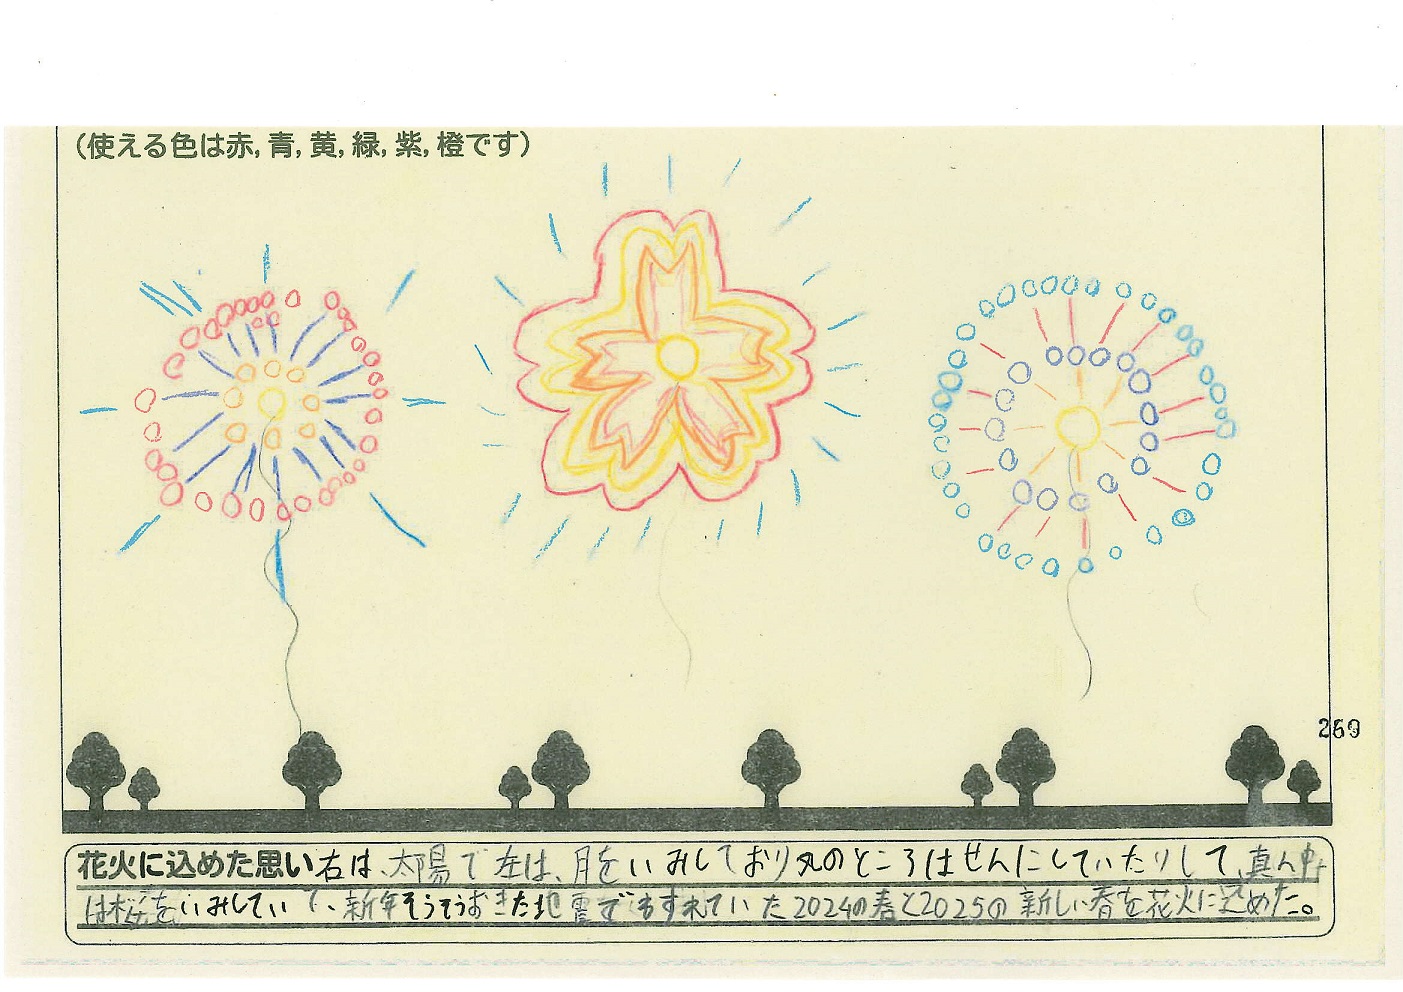 （使える色は赤，青，黄，緑，紫，橙です）
269
花火に込めた思い右は、太陽で左は、月をいみしており丸のところはせんにしていたりして、真ん中
は桜をいみしていて、新年そうそうおきた地震でわすれていた2024の春と2025の新しい春を花火に込めた。